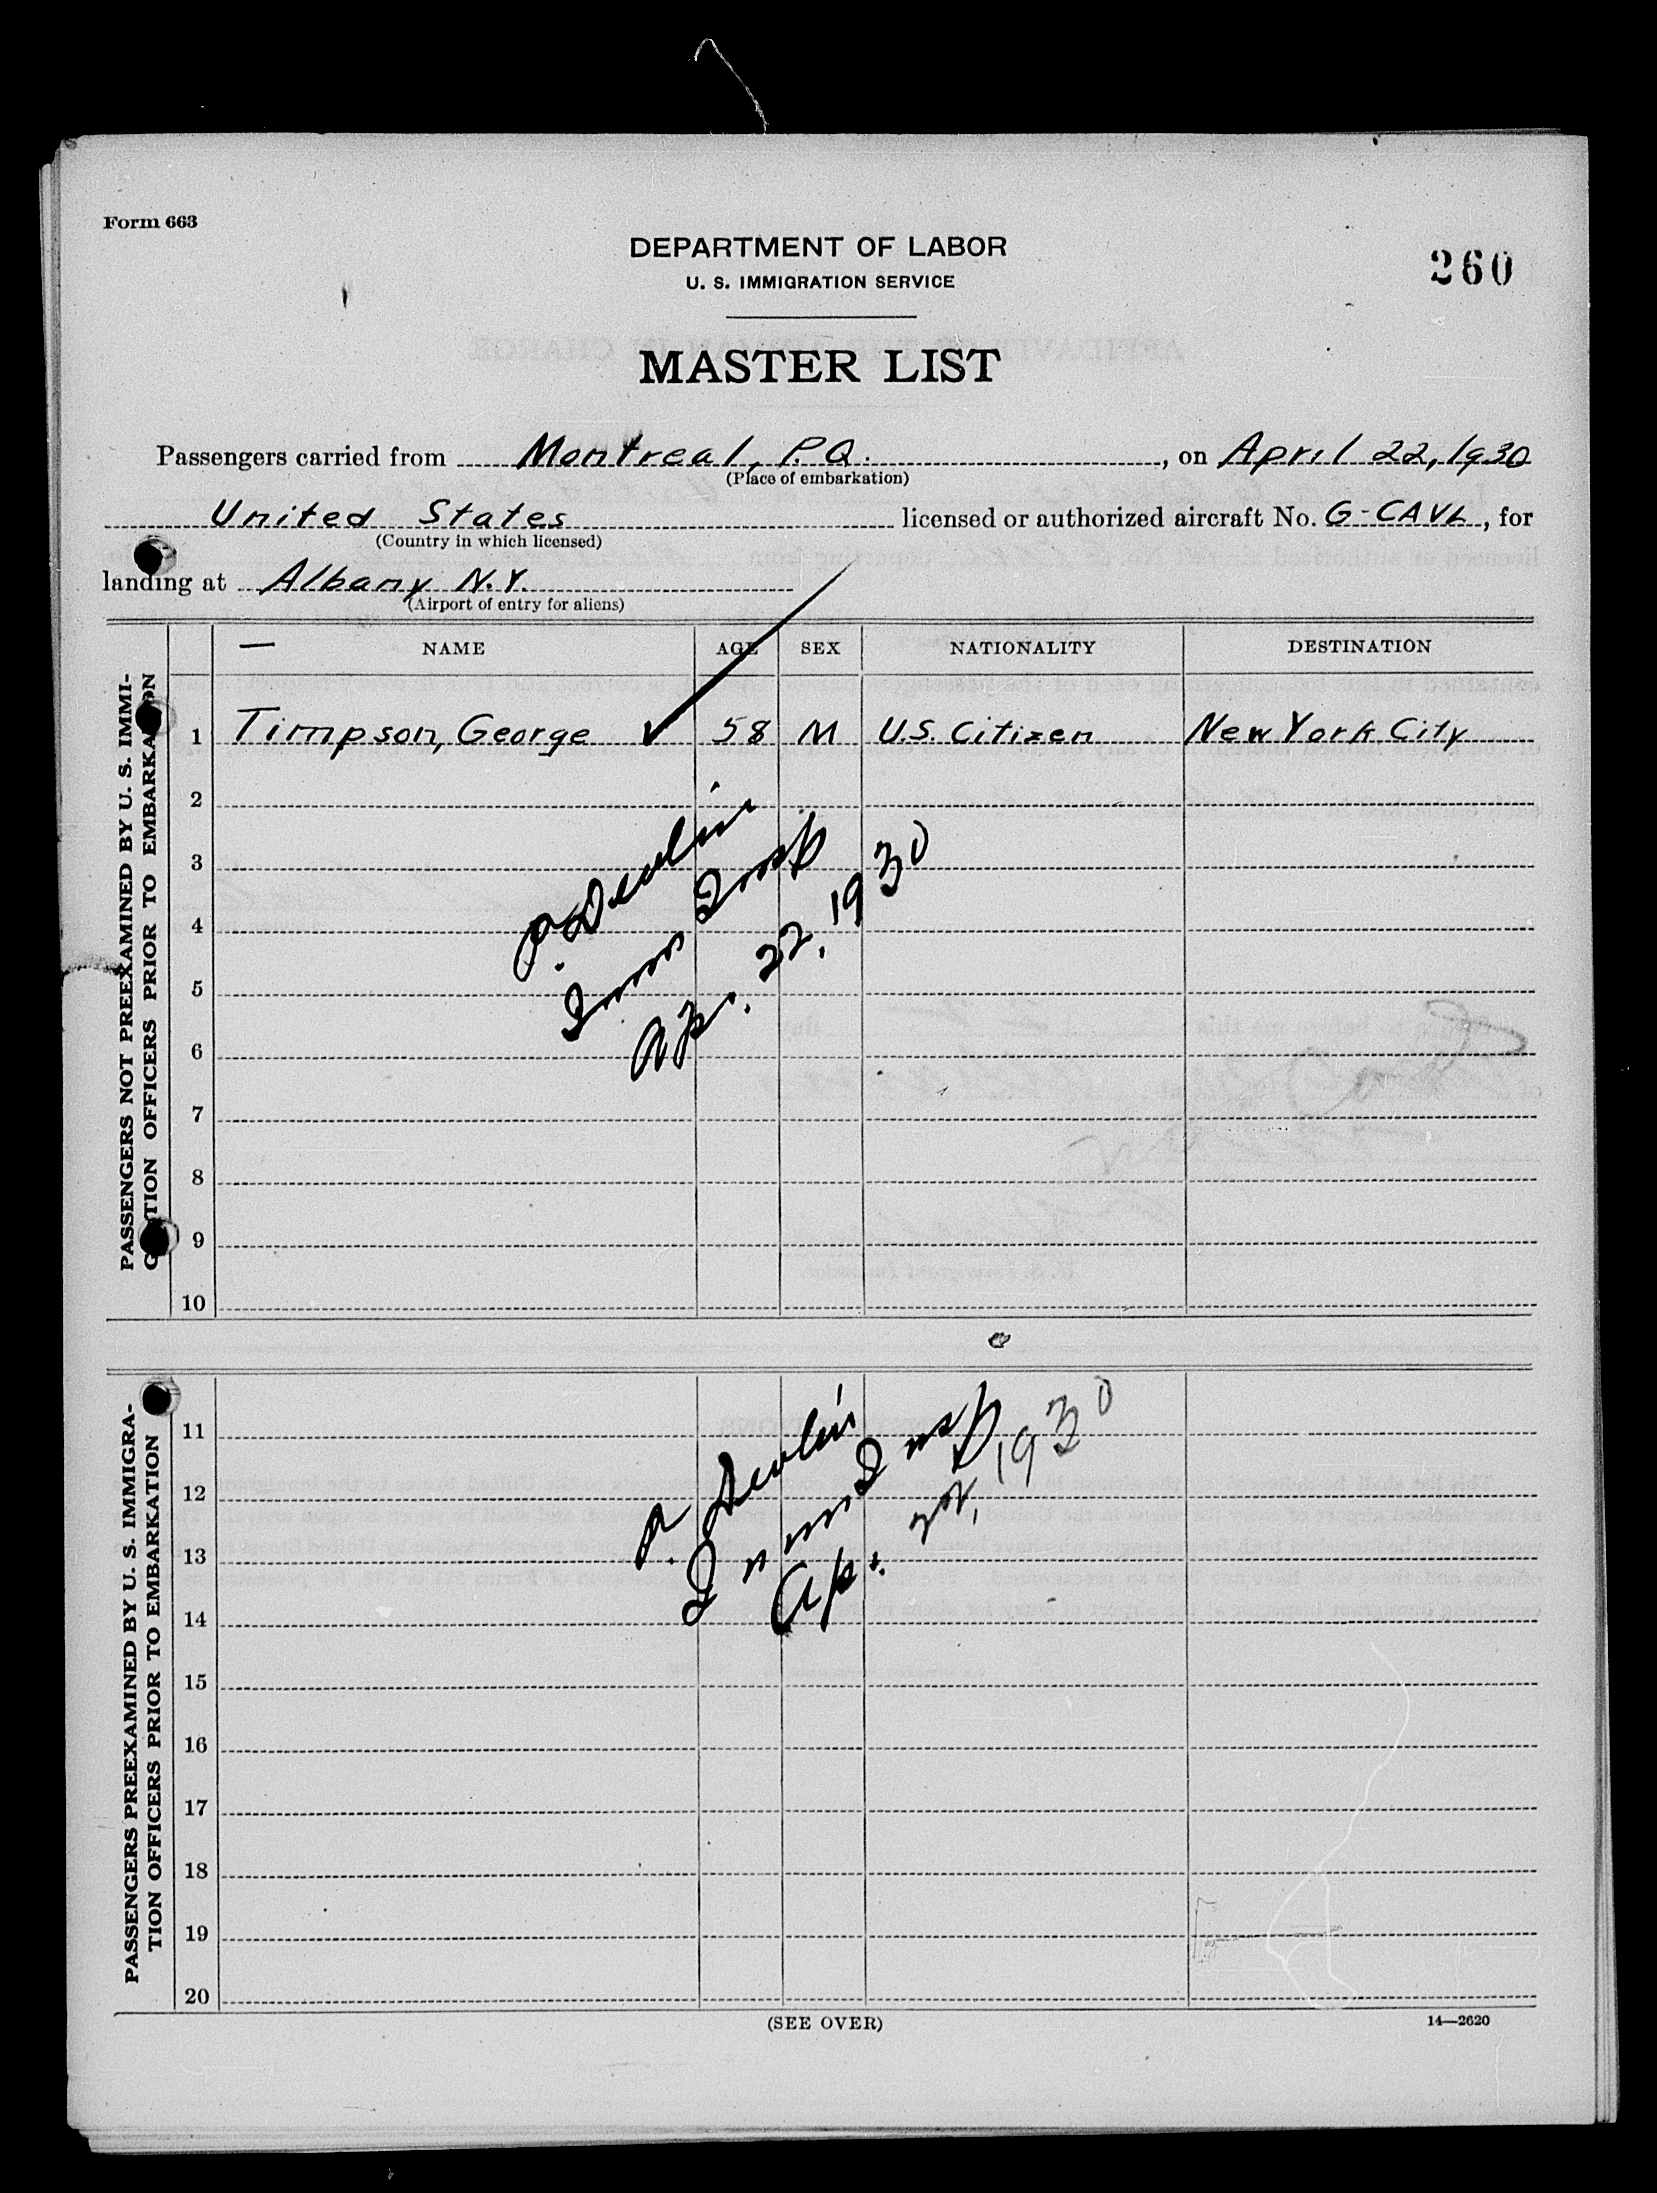 Form 663
DEPARTMENT OF LABOR
U. S. IMMIGRATION SERVICE
260
MASTER LIST
Passengers carried from Montreal, P.Q. , on April 22, 1930
(Place of embarkation)
United States licensed or authorized aircraft No. G-CAVL, for
(Country in which licensed)
landing at Albany N.Y.
(Airport of entry for aliens)
NAME AGE SEX NATIONALITY DESTINATION
PASSENGERS NOT PREEXAMINED BY U. S. IMMI-
GRATION OFFICERS PRIOR TO EMBARKATION
1 Timpson, George ✓ 58 M U.S. Citizen New York City
2
3
4
5
6
7
8
9
10
P. Devlin
Imm Insp
Ap. 22, 1930
PASSENGERS PREEXAMINED BY U. S. IMMIGRA-
TION OFFICERS PRIOR TO EMBARKATION
11
12
13
14
15
16
17
18
19
20
P. Devlin
Imm Insp
Ap. 22, 1930
(SEE OVER)
14—2620